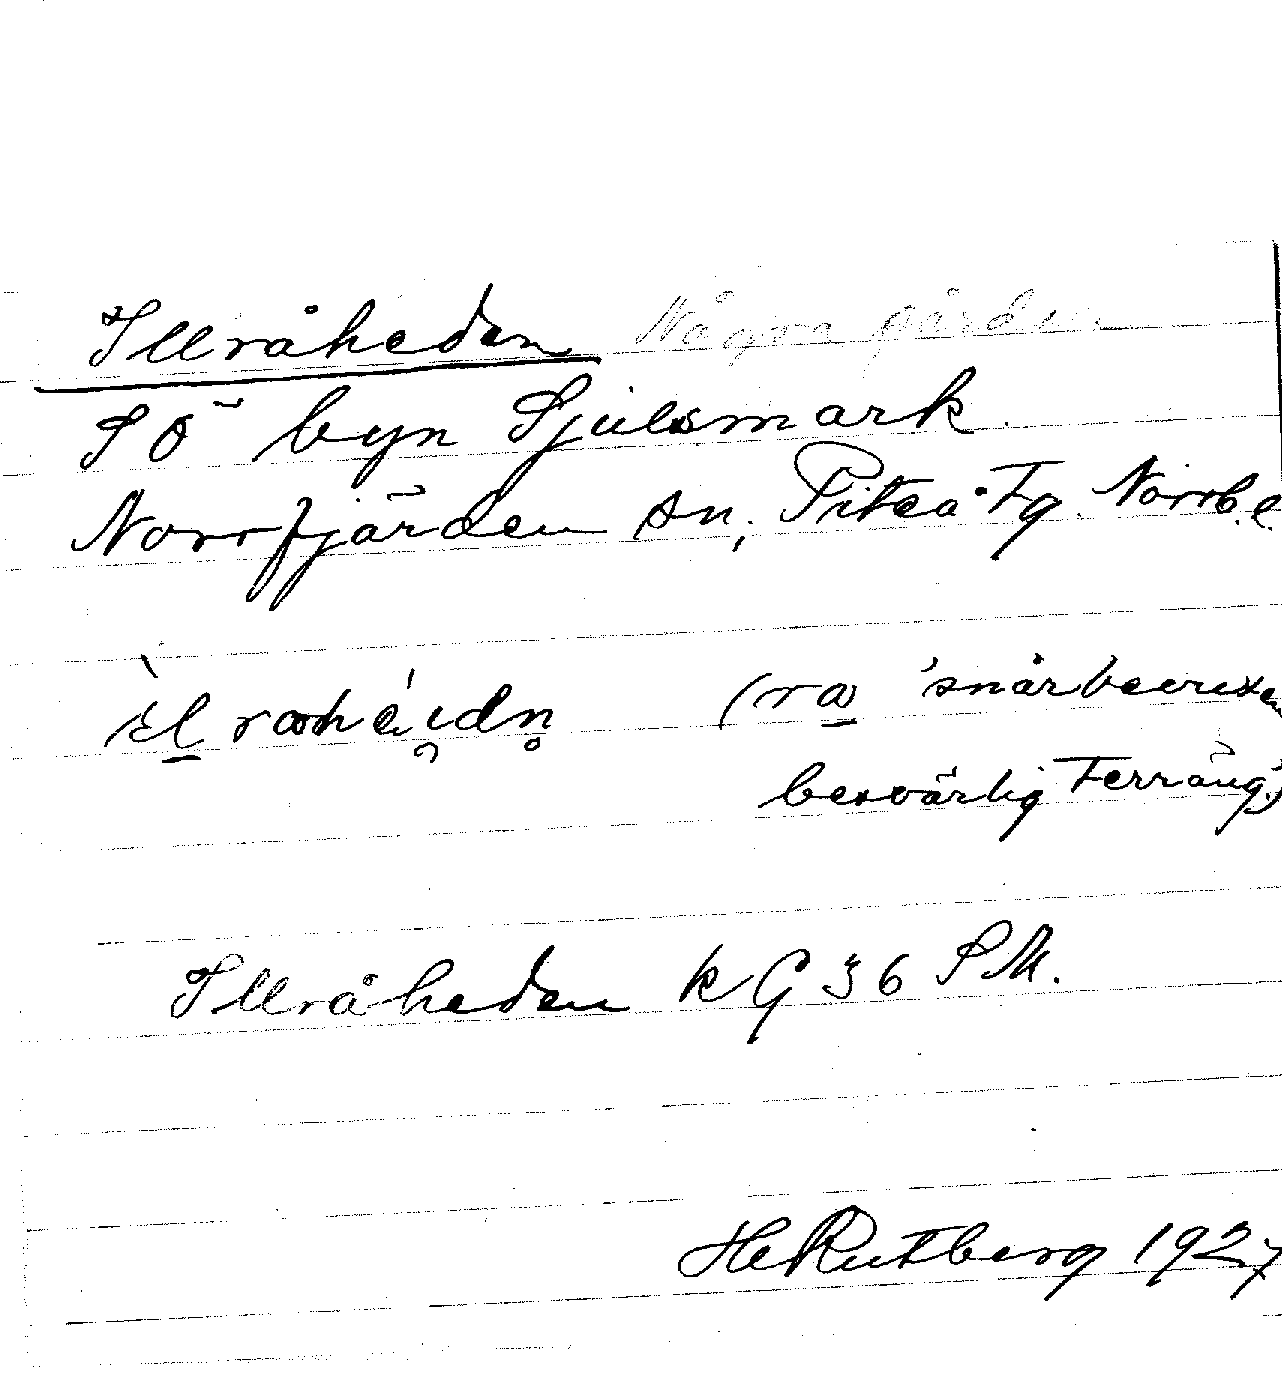 Illråheden Några gårdar
SÖ byn Sjulsmark
Norrfjärden sn, Piteå Tg Norrb.
(rå 'snårbevuxen
besvärlig Terräng')
Illråheden k G 36 SM.
HeRutberg 1927